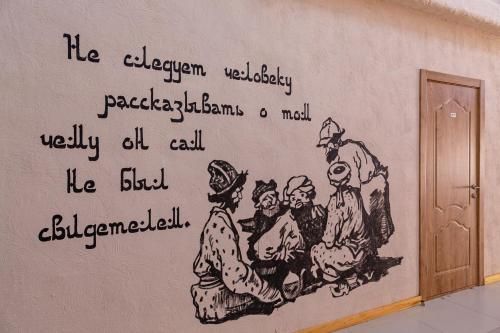 Не следует человеку
рассказывать о том
чему он сам
Не был
свидетелем.